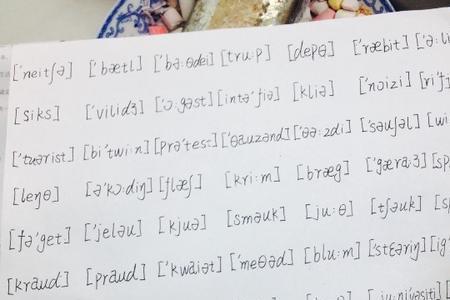 ['neitʃə] ['bætl] ['bə:θdei] [tru:p] [depθ] ['ræbit]
[siks] ['vilidʒ] ['ɔ:gəst] [intə'fiə] [kliə] ['nɔizi]
['tuərist] [bi'twi:n] [prə'test] ['θauzənd] ['θə:zdi] ['səuʃəl]
[leŋθ] [ə'kɔ:diŋ] [flæʃ] [kri:m] [bræg] ['gæra:ʒ]
[fə'get] ['jeləu] [kjuə] [sməuk] [ju:θ] [tʃəuk]
[kraud] [praud] ['kwaiət] ['meθəd] [blu:m] ['stɛəriŋ]